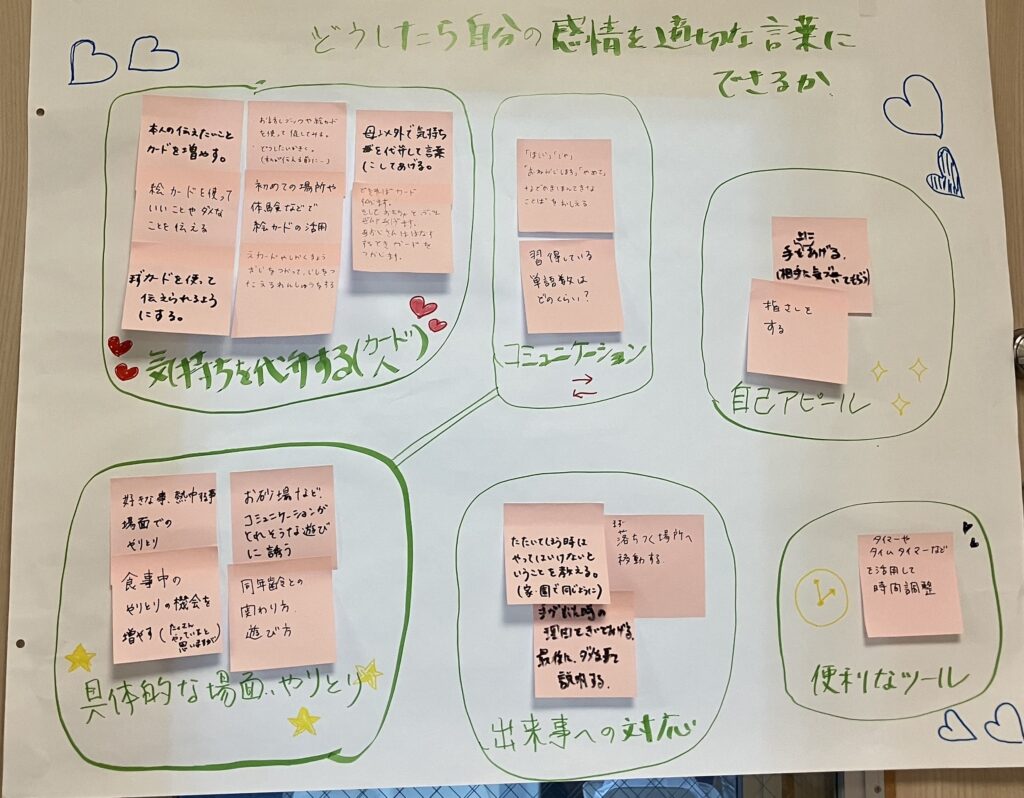 どうしたら自分の感情を適切な言葉に
できるか
本人の伝えたいこと
カードを増やす。
絵カードを使って
いいことやダメな
ことを伝える
カードを使って
伝えられるよう
にする。
お話しブックや絵カード
を使って促してみる。
初めての場所や
体験などで
絵カードの活用
母以外で気持ち
を代弁して言葉
にしてあげる。
できればカード
気持ちを代弁する(カード 人)
ことばをおしえる
習得している
単語数は
どのくらい?
コミュニケーション
手をあげる。
指さしを
する
自己アピール
好きな事、熱中する事
場面での
やりとり
食事中の
やりとりの機会を
増やす(たくさん
やっていると
思いますが)
お砂場など、
コミュニケーションが
とれそうな遊び
に誘う
同年齢との
関わり方
遊び方
具体的な場面、やりとり
たたいてしまう時は
やってはいけないと
いうことを教える。
(家・園で同じように)
まず
落ちつく場所へ
移動する
手が出た時の
理由をきいてあげる。
説明する。
出来事への対応
タイマーや
タイムタイマーなど
で活用して
時間調整
便利なツール